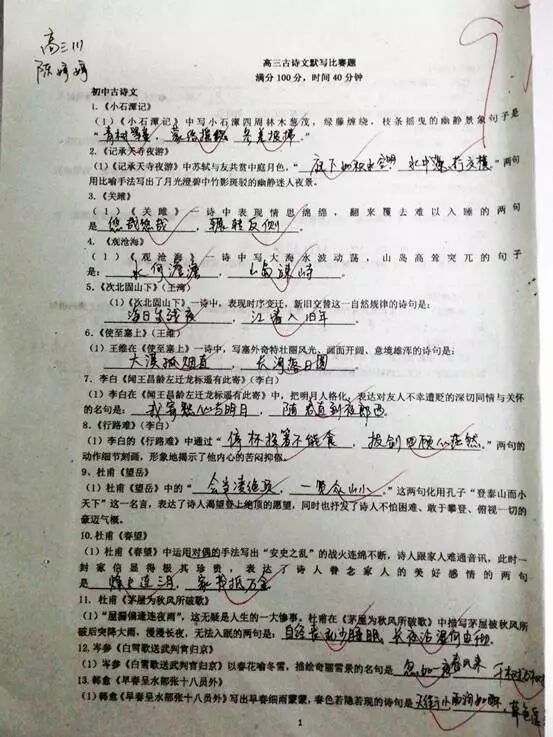 高三川
陈婷婷
9
高三古诗文默写比赛题
满分100分，时间40分钟
初中古诗文
1.《小石潭记》
(1)《小石潭记》中写小石潭四周林木葱茂，绿藤缠绕，枝条摇曳的幽静景象句子是
"青树翠蔓，蒙络摇缀，参差披拂。"
2.《记承天寺夜游》
(1)《记承天寺夜游》中苏轼与友共赏中庭月色，"庭下如积水空明 水中藻荇交横。"两句
用比喻手法写出了月光澄碧中竹影斑驳的幽静迷人夜景。
3.《关雎》
(1)《关雎》一诗中表现情思绵绵，翻来覆去难以入睡的两句
是：悠哉悠哉，辗转反侧。
4.《观沧海》
(1)《观沧海》一诗中写大海水波动荡，山岛高耸突兀的句子
是：水何澹澹，山岛竦峙
5.《次北固山下》(王湾)
(1)《次北固山下》一诗中，表现时序变迁，新旧交替这一自然规律的诗句是：
海日生残夜，江春入旧年。
6.《使至塞上》(王维)
(1)王维在《使至塞上》一诗中，写塞外奇特壮丽风光、画面开阔、意境雄浑的诗句是：
大漠孤烟直，长河落日圆。
7.李白《闻王昌龄左迁龙标遥有此寄》(李白)
(1)李白在《闻王昌龄左迁龙标遥有此寄》中，把明月人格化，表达对友人不幸遭贬的深切同情与关
怀的名句是：我寄愁心与明月，随君直到夜郎西
8.《行路难》(李白)
(1)李白的《行路难》中通过"停杯投箸不能食，拔剑四顾心茫然。"两句的
动作细节刻画，形象地揭示了他内心的苦闷抑郁。
9、杜甫《望岳》
(1)杜甫《望岳》中的"会当凌绝顶，一览众山小。"这两句化用孔子"登泰山而小
天下"这一名言，表达了诗人渴望登上绝顶的愿望，同时也抒发了诗人不怕困难、敢于攀登、俯视一切的
豪迈气概。
10.杜甫《春望》
(1)杜甫《春望》中运用对偶的手法写出"安史之乱"的战火连绵不断，诗人跟家人难通音讯，此时一
封家信显得极其珍贵，表达了诗人眷念家人的美好感情的两句
是 烽火连三月，家书抵万金
11、杜甫《茅屋为秋风所破歌》
(1)"屋漏偏逢连夜雨"，这无疑是人生的一大惨事，杜甫在《茅屋为秋风所破歌》中描写茅屋被秋风所
破后突降大雨，漫漫长夜，无法入眠的两句是：自经丧乱少睡眠，长夜沾湿何由彻
12、岑参《白雪歌送武判官归京》
(1)岑参《白雪歌送武判官归京》以春花喻冬雪，描绘奇丽雪景的名句是 忽如一夜春风来，千树万树
13、韩愈《早春呈水部张十八员外》
(1)韩愈《早春呈水部张十八员外》写出早春细雨蒙蒙，春色若隐若现的诗句是 天街小雨润如酥，草色遥
1